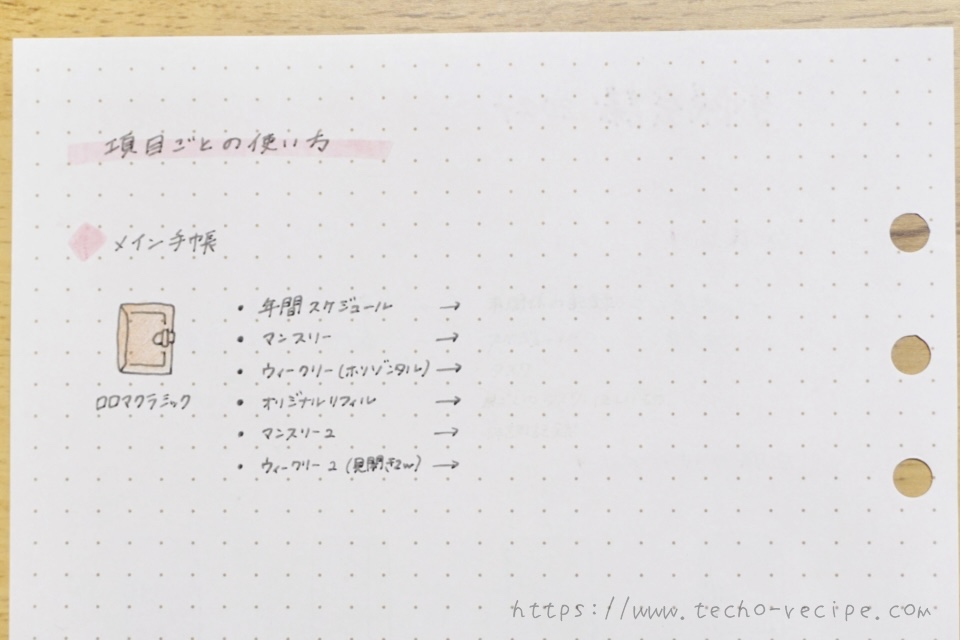 項目ごとの使い方
メイン手帳
・年間スケジュール →
・マンスリー →
・ウィークリー(ホリゾンタル) →
・オリジナルリフィル →
・マンスリー2 →
・ウィークリー2(見開き2w) →
ロロマクラシック
https://www.techo-recipe.com